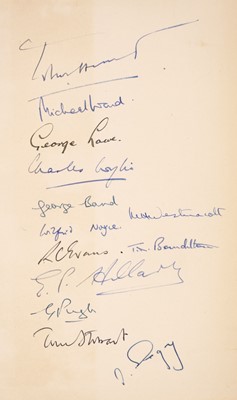 John Hunt
Michael Ward.
George Lowe.
Charles Wylie
George Band
Wilfrid Noyce. M H Westmacott
R C Evans. T. D. Bourdillon
E. P. Hillary
G Pugh
Tom Stobart